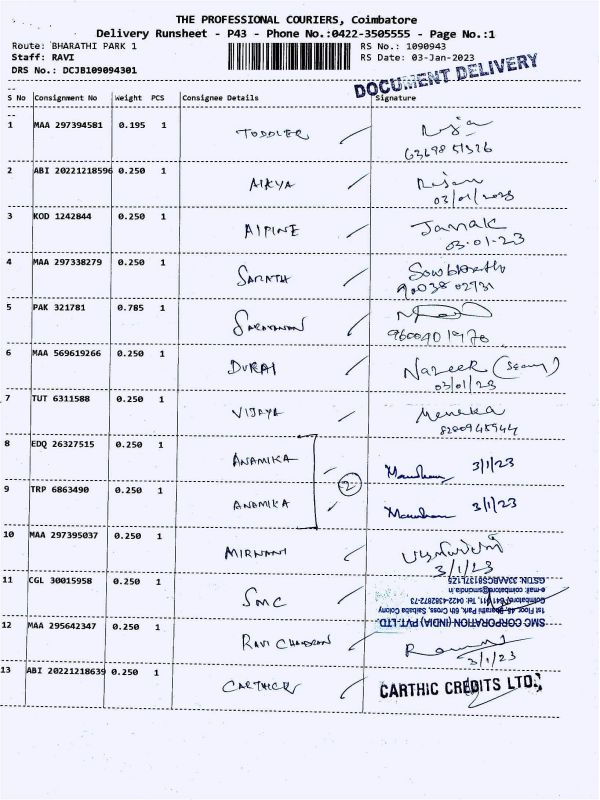 THE PROFESSIONAL COURIERS, Coimbatore
Delivery Runsheet - P43 - Phone No.:0422-3505555 - Page No.:1
Route: BHARATHI PARK 1 RS No.: 1090943
Staff: RAVI RS Date: 03-Jan-2023
DRS No.: DCJB109094301
DOCUMENT DELIVERY
S No Consignment No Weight PCS Consignee Details Signature
1 MAA 297394581 0.195 1 TODDLER
2 ABI 20221218596 0.250 1 AIKYA
03/01/2023
3 KOD 1242844 0.250 1 AIPINE Janak
03-01-23
4 MAA 297338279 0.250 1 SARATH
90038 02931
5 PAK 321781 0.785 1 SARAVANAN
9600401970
6 MAA 569619266 0.250 1 DURAI Nazeer
03/01/23
7 TUT 6311588 0.250 1 VIJAYA Meneka
8 EDQ 26327515 0.250 1 ANAMIKA 3/1/23
2
9 TRP 6863490 0.250 1 ANAMIKA 3/1/23
10 MAA 297395037 0.250 1 MIRNANI
3/1/23
11 CGL 30015958 0.250 1 SMC
SMC CORPORATION (INDIA) PVT. LTD.
1st Floor, 46, Bharathi Park, 6th Cross, Saibaba Colony
e-mail: coimbatore@smcindia.in
12 MAA 295642347 0.250 1 RAVI CHANDRAN
3/1/23
13 ABI 20221218639 0.250 1 CARTHICK CARTHIC CREDITS LTD.,